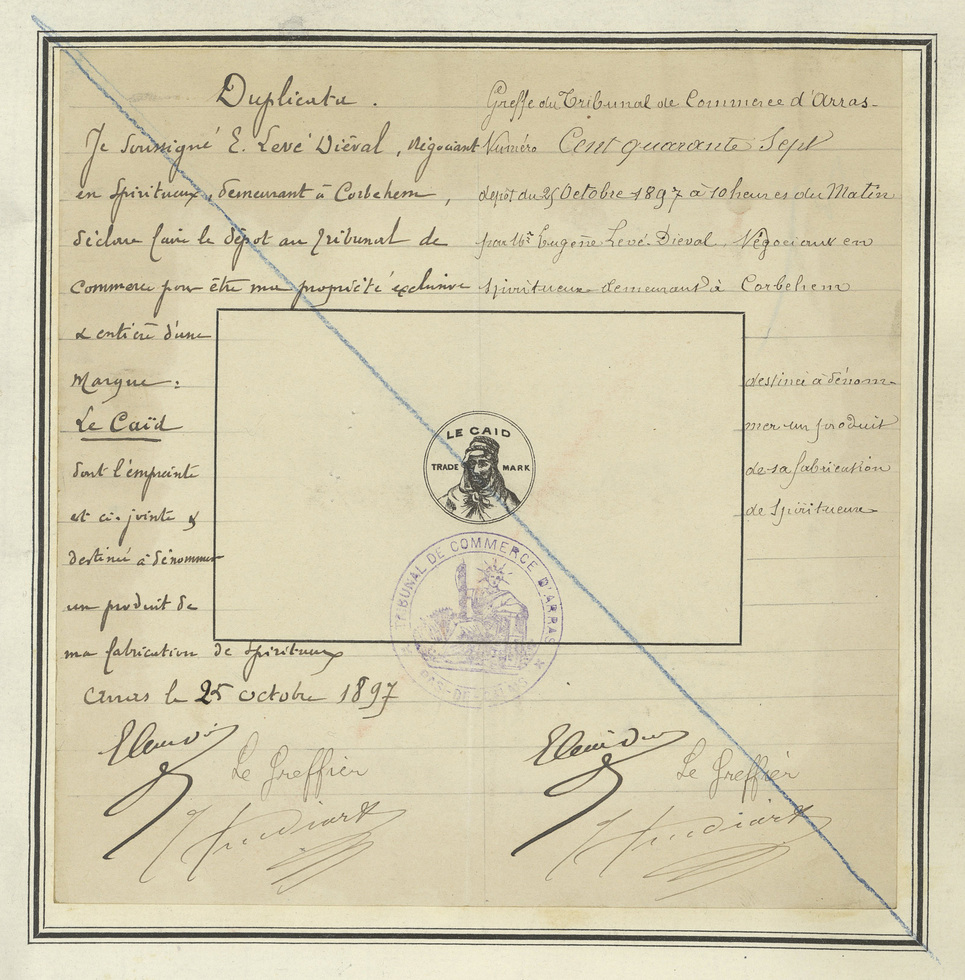 Duplicata.
Je Soussigné E. Levé Diéval, négociant
en Spiritueux, demeurant à Corbehem,
déclare faire le dépôt au Tribunal de
Commerce pour être ma propriété exclusive
& entière d'une
Marque :
Le Caïd
dont l'empreinte
est ci-jointe &
destinée à dénommer
un produit de
ma fabrication de Spiritueux
Arras le 25 octobre 1897
Le Greffier
Greffe du Tribunal de Commerce d'Arras-
Numéro Cent quarante Sept
dépôt du 25 Octobre 1897 à 10 heures du Matin
par Mr Eugène Levé-Diéval, Négociant en
Spiritueux demeurant à Corbehem
destinée à dénom-
mer un produit
de sa fabrication
de Spiritueux
Le Greffier
LE CAID
TRADE MARK
TRIBUNAL DE COMMERCE D'ARRAS
PAS-DE-CALAIS